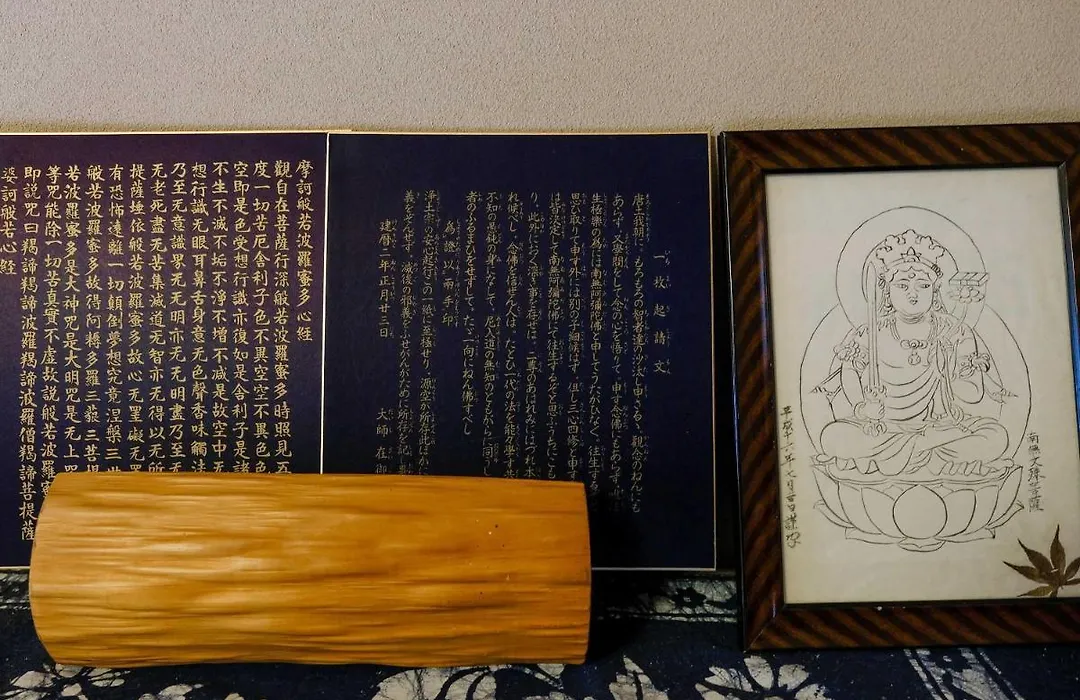 摩訶般若波羅蜜多心経
觀自在菩薩行深般若波羅蜜多時照見五
度一切苦厄舍利子色不異空空不異色色
空即是色受想行識亦復如是舍利子是諸
不生不滅不垢不淨不増不減是故空中无
想行識无眼耳鼻舌身意无色聲香味觸法
乃至无意識界无无明亦无无明盡乃至无
无老死盡无苦集滅道无智亦无得以无所
提薩埵依般若波羅蜜多故心无罣礙无罣
有恐怖遠離一切顛倒夢想究竟涅槃三世
般若波羅蜜多故得阿耨多羅三藐三菩提
若波羅蜜多是大神咒是大明咒是无上咒
等咒能除一切苦真實不虚故説般若波羅蜜
即説咒曰羯諦羯諦波羅羯諦波羅僧羯諦菩提薩
婆訶般若心経
一枚起請文
唐土我朝に、もろもろの智者達の沙汰し申さるゝ、觀念のねんにも
あらず、又學問をして念の心を悟りて、申す念佛にもあらず、唯
生極樂の為には南無阿彌陀佛と申してうたがひなく、往生する
思ひ取りて申す外には別の子細候はず、但し三心四修と申す
は皆決定して南無阿彌陀佛にて往生するぞと思ふうちにこも
り、此外におく深き事を存せば、二尊のあはれみにはづれ本
れ候べし、念佛を信ぜん人は、たとひ一代の法を能々學す共
不知の愚鈍の身になして、尼入道の無知のともからに同うし
者のふるまひをせずして、たゞ一向にねん佛すべし
為證以兩手印
淨土宗の安心起行この一紙に至極せり、源空が所存此ほか
義を存ぜず、滅後の邪義をふせがんがために所存を記し畢
建暦二年正月廿三日 大師在御
南無文殊菩薩
平成十六年七月